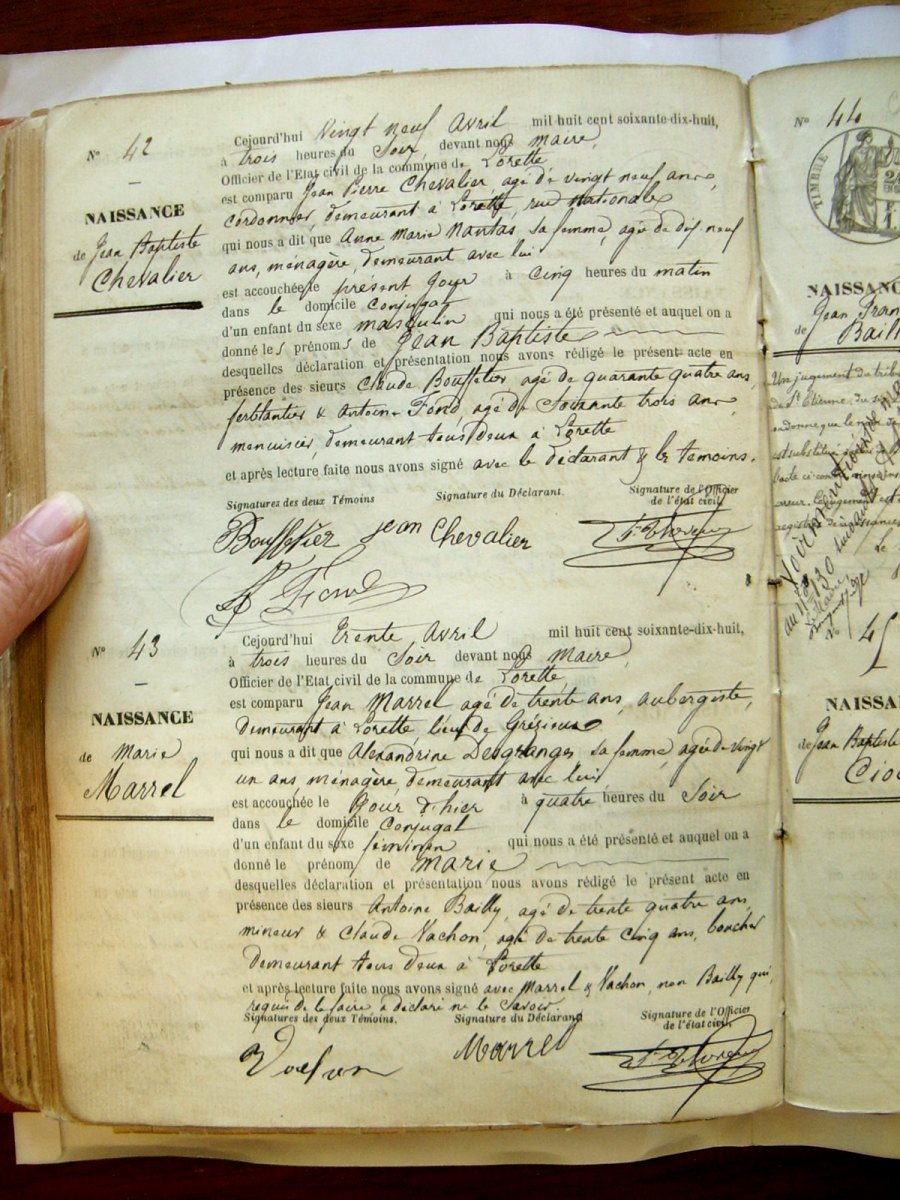 N° 42
NAISSANCE
de Jean Baptiste
Chevalier
Cejourd'hui Vingt neuf Avril mil huit cent soixante-dix-huit,
à trois heures du Soir, devant nous Maire,
Officier de l'Etat civil de la commune de Lorette
est comparu Jean Pierre Chevalier, agé de vingt neuf ans,
cordonnier, demeurant à Lorette, rue Nationale
qui nous a dit que Anne Marie Nantas sa femme, agée de dix neuf
ans, ménagère, demeurant avec lui
est accouchée le présent jour à cinq heures du matin
dans le domicile conjugal
d'un enfant du sexe masculin qui nous a été présenté et auquel on a
donné les prénoms de Jean Baptiste
desquelles déclaration et présentation nous avons rédigé le présent acte en
présence des sieurs Claude Bouffetier, agé de quarante quatre ans,
ferblantier & Antoine Fond, agé de Soixante trois ans,
menuisier, demeurant tous deux à Lorette
et après lecture faite nous avons signé avec le déclarant & les témoins.
Signatures des deux Témoins
Signature du Déclarant.
Signature de l'Officier
de l'état civil,
Bouffetier
Jean Chevalier
A Fond
N° 43
NAISSANCE
de Marie
Marrel
Cejourd'hui Trente Avril mil huit cent soixante-dix-huit,
à trois heures du Soir devant nous Maire,
Officier de l'Etat civil de la commune de Lorette,
est comparu Jean Marrel agé de trente ans, aubergiste,
demeurant à Lorette, lieu de Grézieux
qui nous a dit que Alexandrine Desgranges sa femme, agée de vingt
un ans, ménagère, demeurant avec lui
est accouchée le jour d'hier à quatre heures du Soir
dans le domicile conjugal
d'un enfant du sexe féminin qui nous a été présenté et auquel on a
donné le prénom de Marie
desquelles déclaration et présentation nous avons rédigé le présent acte en
présence des sieurs Antoine Bailly, agé de trente quatre ans,
mineur & Claude Vachon, agé de trente cinq ans, boucher
demeurant tous deux à Lorette
et après lecture faite nous avons signé avec Marrel & Vachon, non Bailly qui,
requis de le faire a déclaré ne le savoir
Signatures des deux Témoins.
Signature du Déclarant
Signature de l'Officier
de l'état civil,
Vachon
Marrel
N° 44
TIMBRE
NAISSANC
Jean Fran
de Baill
Un jugement du tribu
de St Etienne, du
ordonne que le
est substitué
Le
N° 45
NAISSA
de Jean Baptiste
Cio